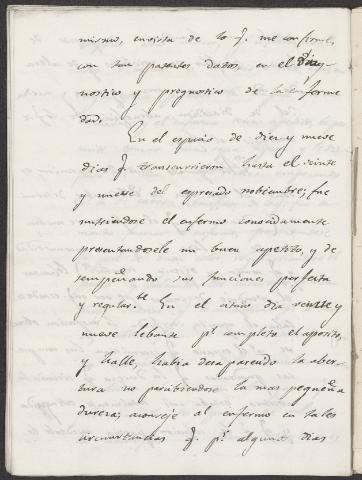 mismo, en vista de lo q. me confirme,
con tan patentes datos, en el diag-
nostico y prognostico de la enferme
dad.
En el espacio de diez y nueve
dias q. transcurrieron hasta el veinte
y nueve del espresado nobiembre; fue
nutriendose el enfermo conosidamente
presentandosele un buen apetito, y de
sempeñando sus funciones perfecta
y regular.te En el citado dia veinte y
nueve lebante p.r completo el aposito,
y halle, habia desaparecido la aber-
tura no percibiendose la mas pequeña
dureza; aconseje al enfermo en tales
circunstancias q. p.r algunos dias